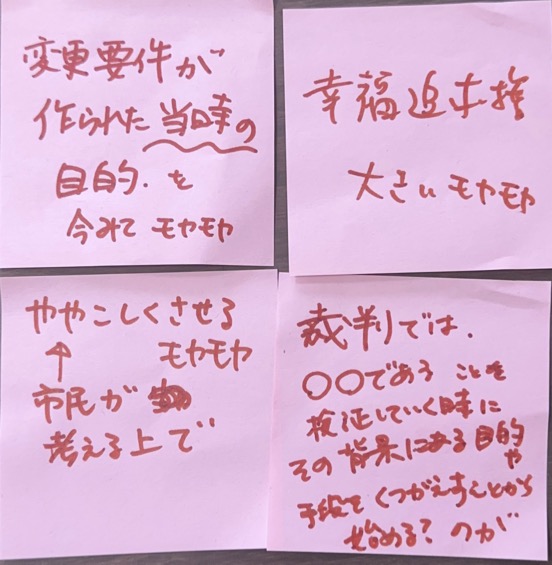 変更要件が
作られた当時の
目的.を
今みて モヤモヤ
幸福追求権
大きい モヤモヤ
ややこしくさせる
↑ モヤモヤ
市民が
考える上で
裁判では.
○○であることを
検証していく時に
その背景にある目的や
手段をくつがえすことから
始める?のが